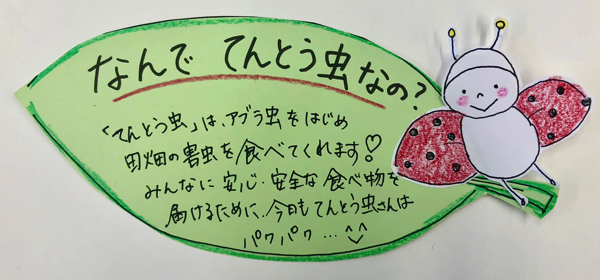 なんで てんとう虫なの?
「てんとう虫」は、アブラ虫をはじめ
田畑の害虫を食べてくれます♡
みんなに 安心・安全な食べ物を
届けるために、今日も てんとう虫さんは
パクパク…^^